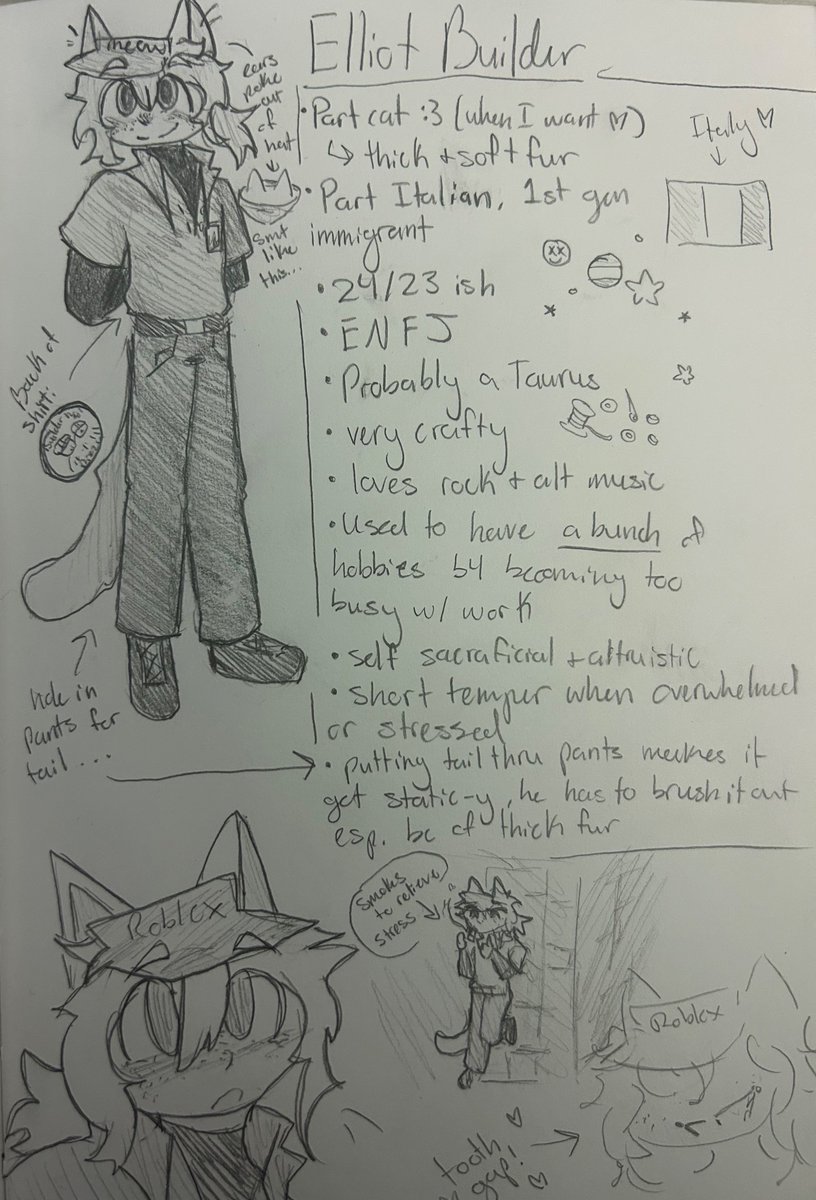 meow!
Elliot Builder
ears
poke
out
of
hat
smt
like
this...
• Part cat :3 (when I want ♡)
↳ thick + soft fur
Italy ♡
• Part Italian, 1st gen
immigrant
• 24/23 ish
• ENFJ
• Probably a Taurus
• very crafty
• loves rock + alt music
• Used to have a bunch of
hobbies b4 becoming too
busy w/ work
• self sacraficial + altruistic
• short temper when overwhelmed
or stressed
• putting tail thru pants makes it
get static-y, he has to brush it out
esp. bc of thick fur
Back of
shirt:
hole in
pants for
tail ...
Roblox
smokes
to relieve
stress
Roblox
tooth
gap!